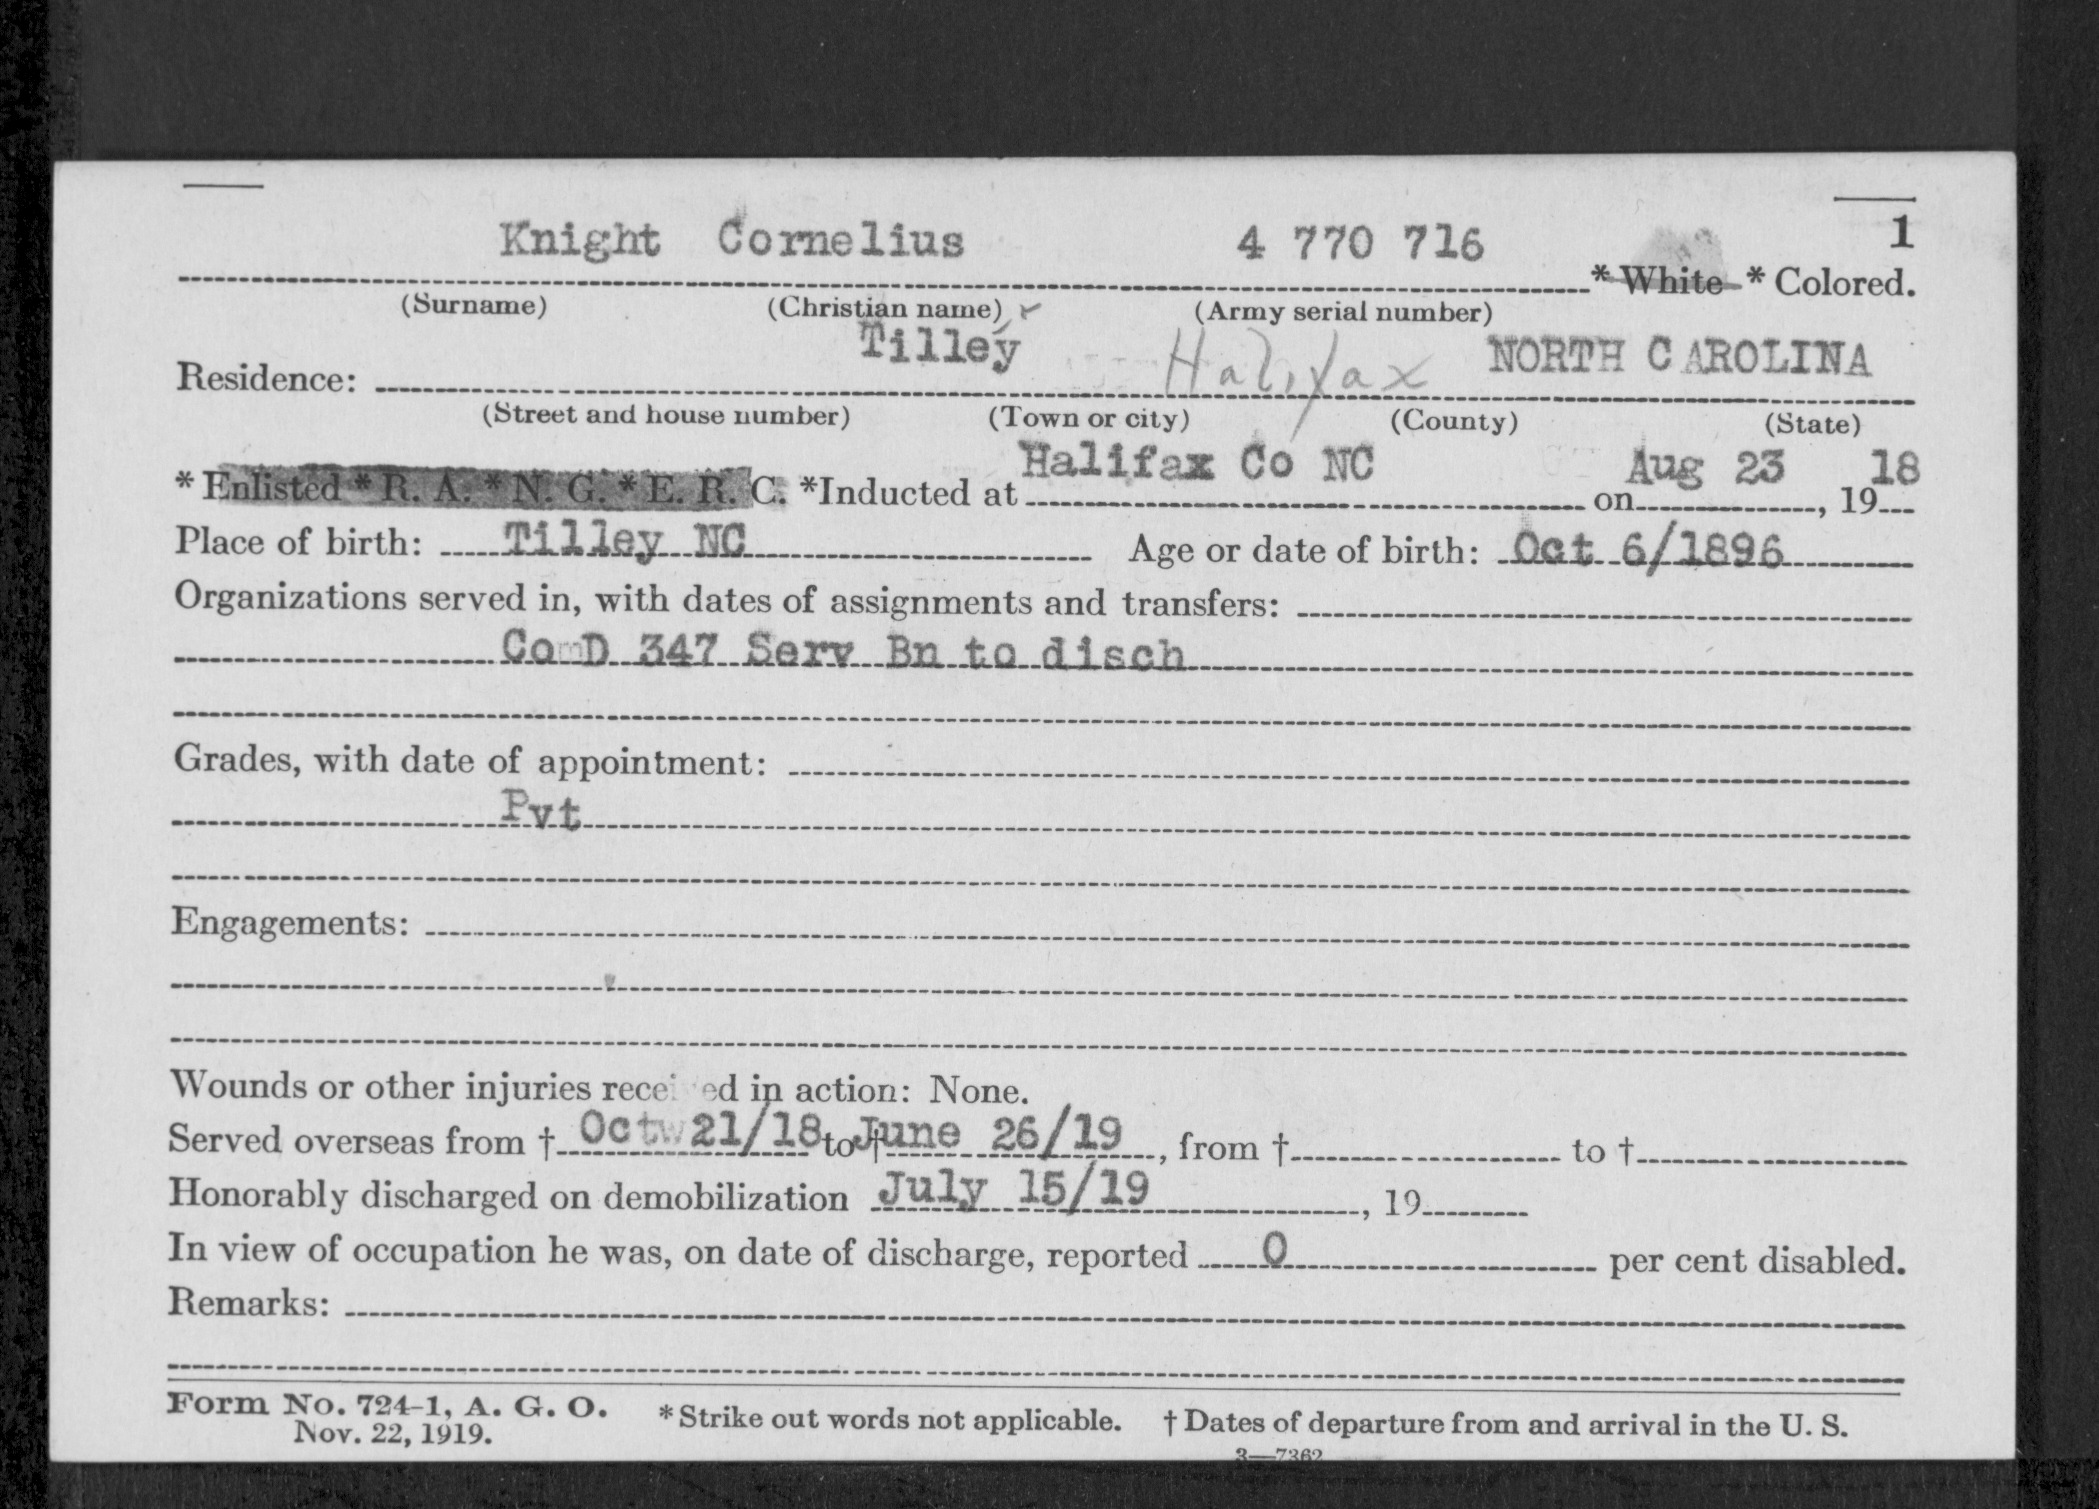 Knight Cornelius 4 770 716 1
* White * Colored.
(Surname) (Christian name) (Army serial number)
Tilley Halifax NORTH CAROLINA
Residence:
(Street and house number) (Town or city) (County) (State)
* Enlisted * R. A. * N. G. * E. R. C. *Inducted at Halifax Co NC on Aug 23, 1918
Place of birth: Tilley NC Age or date of birth: Oct 6/1896
Organizations served in, with dates of assignments and transfers:
Co D 347 Serv Bn to disch
Grades, with date of appointment:
Pvt
Engagements:
Wounds or other injuries received in action: None.
Served overseas from † Oct 21/18 to † June 26/19, from † to †
Honorably discharged on demobilization July 15/19, 19
In view of occupation he was, on date of discharge, reported 0 per cent disabled.
Remarks:
Form No. 724-1, A. G. O. * Strike out words not applicable. † Dates of departure from and arrival in the U. S.
Nov. 22, 1919.
3—7362